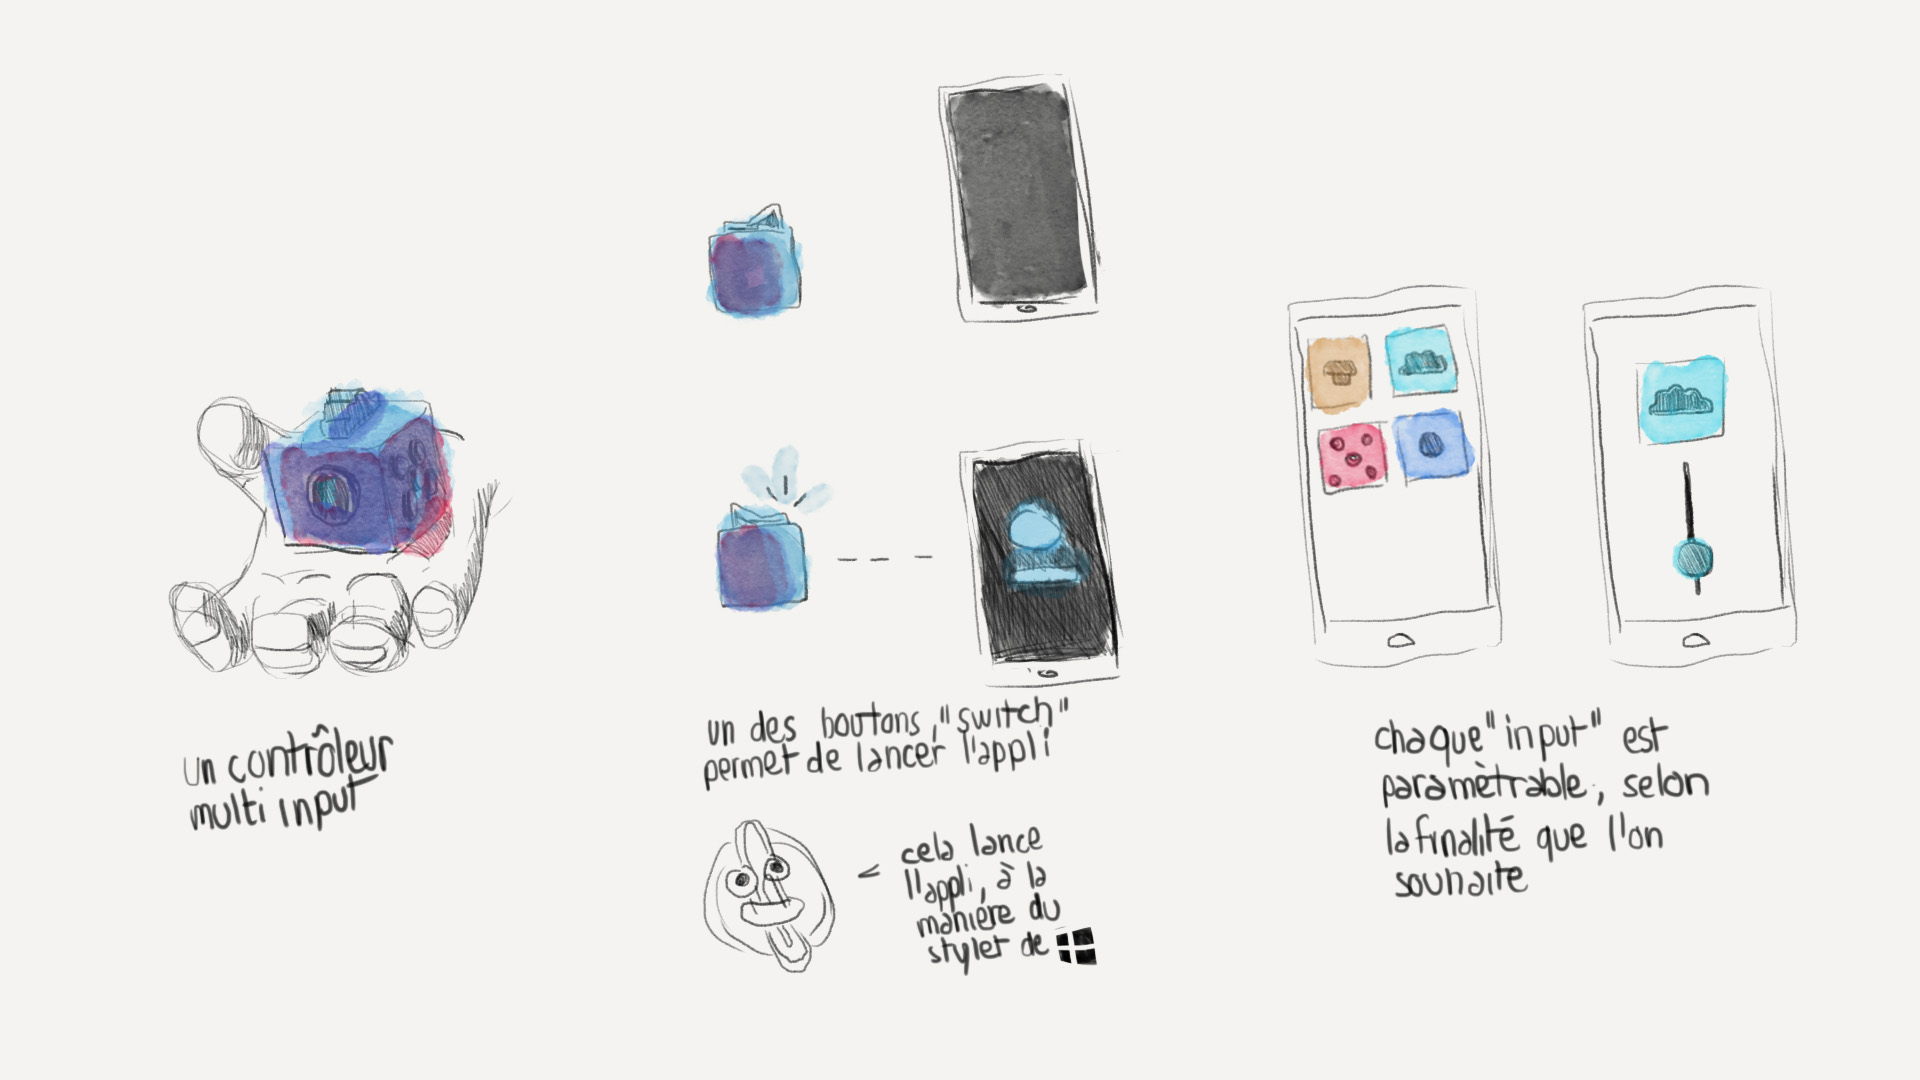 un contrôleur
multi input
un des boutons, "switch"
permet de lancer l'appli
cela lance
l'appli, à la
manière du
stylet de
chaque "input" est
paramètrable, selon
la finalité que l'on
souhaite